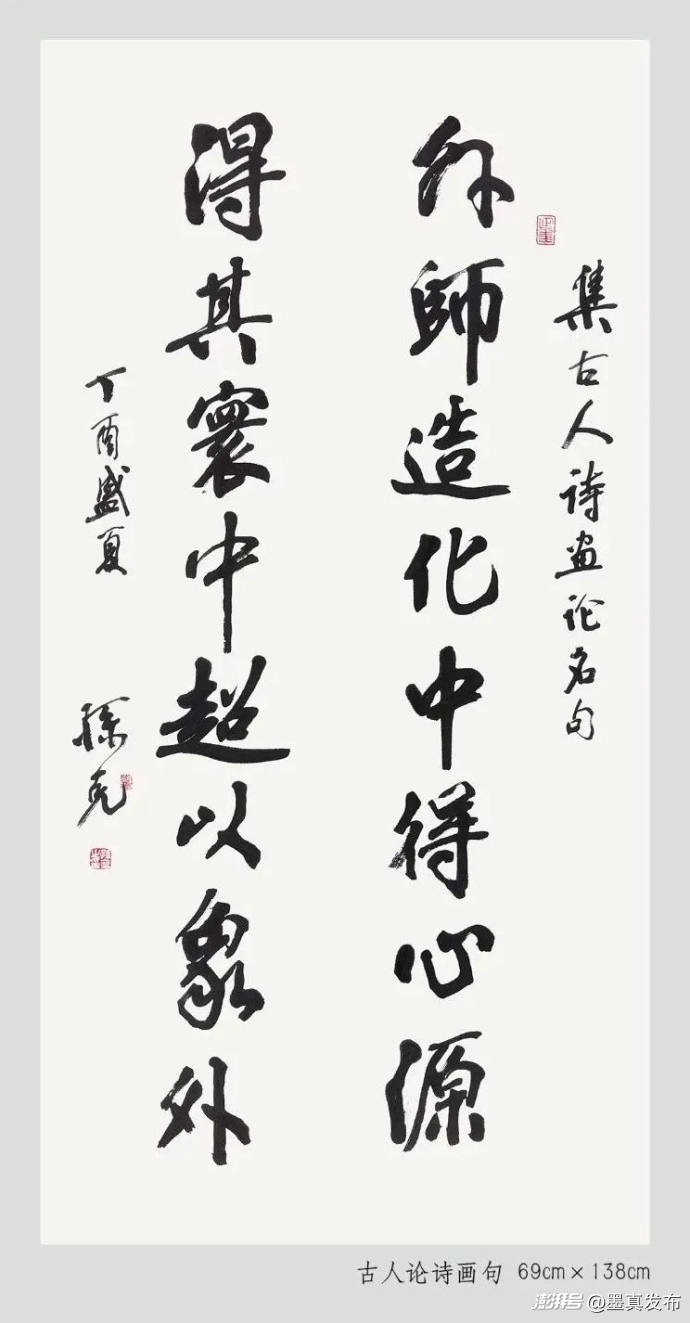 集古人诗画论名句
外師造化中得心源
得其寰中超以象外
丁酉盛夏 孫克
古人论诗画句 69cm×138cm
澎湃号@墨真发布